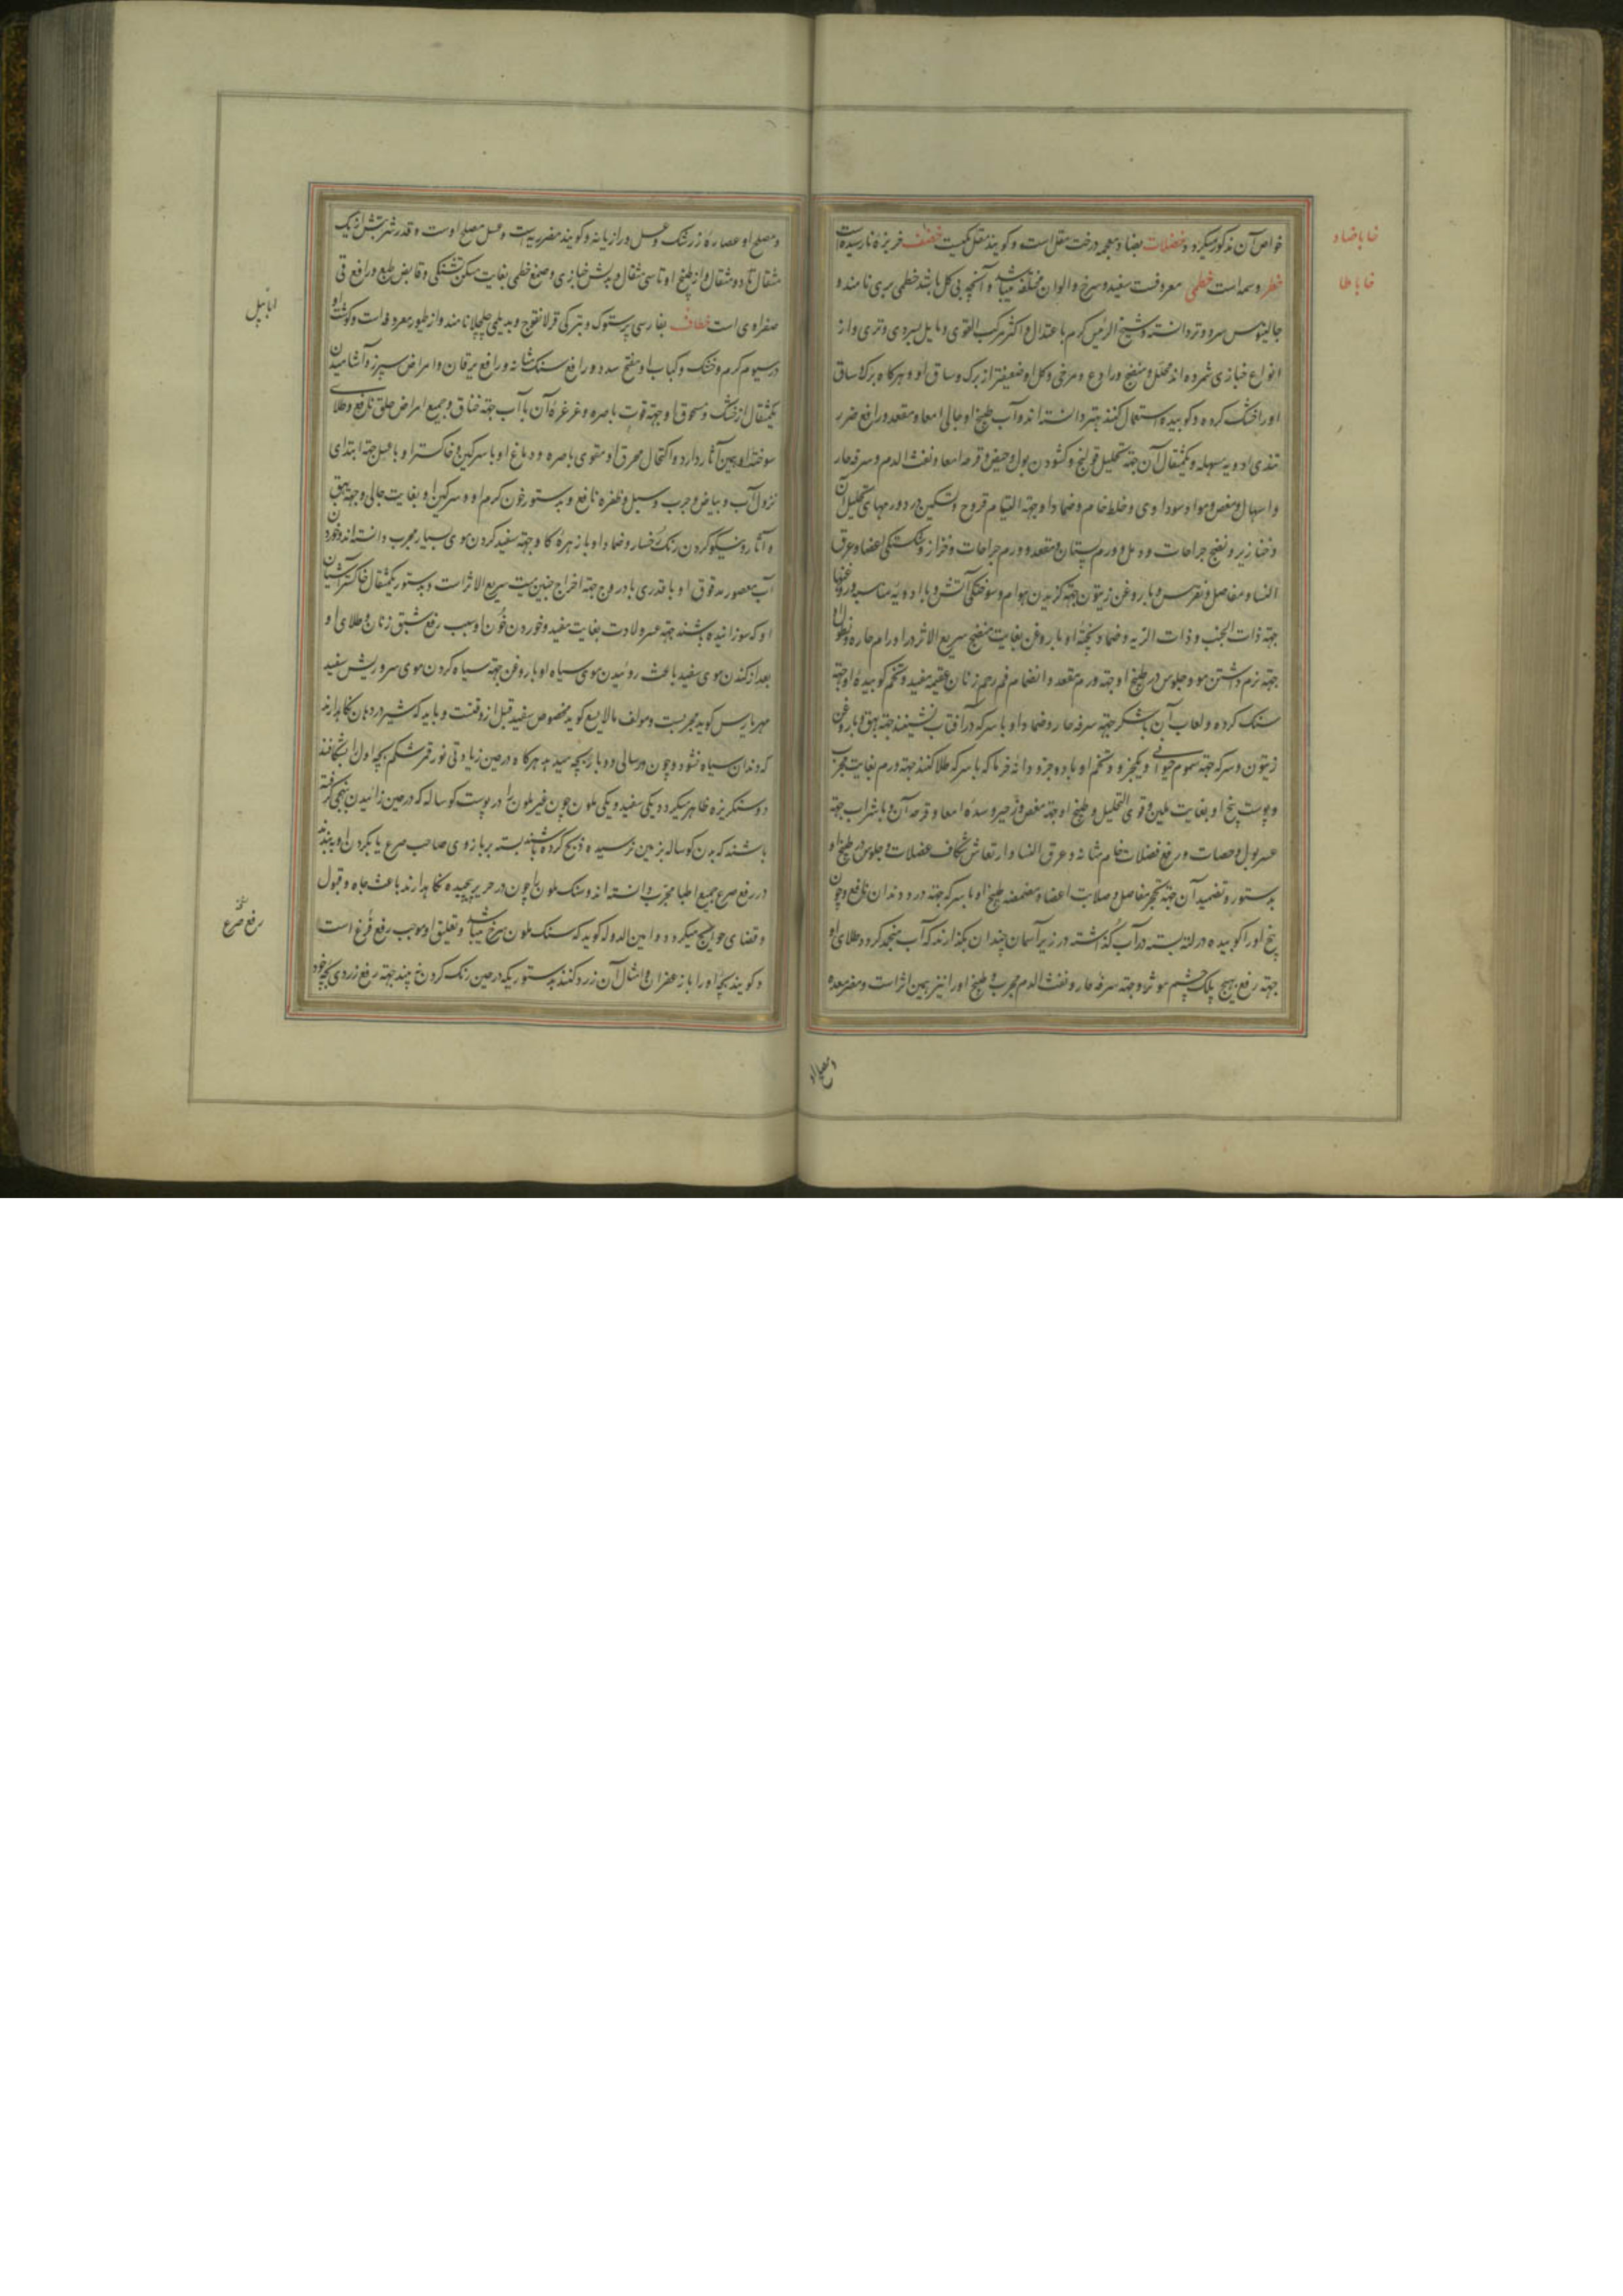 خا با ضاد
خواص آن مذکور میگردد خضلات بضاد معجمه درخت مقل است و کویند مقل مکیست خضف خربزهٔ نارسیده است
خا با طا
خطر وسمه است خطمی معروفست سفید و سرخ و الوان مختلفه میباشد و آنچه بی کل باشد خطمی بری نامند و
جالینوس سرد و تر دانسته و شیخ الرئیس کرم باعتدال و اکثر مرکب القوی و مایل بسردی و تری و از
انواع خبازی شمرده اند محلل و منضج و رادع و مرخی و کل او ضعیفتر از برک و ساق او و هرکاه برک و ساق
او را خشک کرده و کوبیده استعمال کنند بهتر دانسته اند و آب طبیخ او جالی امعا و مقعد و رافع ضرر
تندی ادویه مسهله و یکمثقال آن جهته تحلیل قولنج و کشودن بول و حیض و قرحه امعا و نفث الدم و سرفه حار
و اسهال و مغص و مواد سوداوی و خلط خام و ضماد او جهته التیام قروح و تسکین درد ورمهای تحلیل آن
و خنازیر و نضج جراحات و دمل و ورم پستان و مقعد و ورم جراحات و خزاز و شکستگی اعضا و عرق
النسا و مفاصل و نقرس و با روغن زیتون جهته کزیدن هوام و سوختکی آتش و با ادویهٔ مناسبه و روغنها
جهته ذات الجنب و ذات الریه و ضماد پختهٔ او با روغن بغایت منضج سریع الاثر در اورام حاره و نطول او
جهته نرم داشتن مو و جلوس در طبیخ او جهته ورم مقعد و انضمام فم رحم زنان عقیمه مفید و تخم کوبیدهٔ او جهته
سنک کرده و لعاب آن با شکر جهته سرفه حار و ضماد او با سرکه در آفتاب نشینند جهته بهق و با روغن
زیتون و سرکه جهته سموم حیوانی و یکجزو و تخم او با دو جزو دانهٔ خرما که با سرکه طلا کنند جهته ورم بغایت مجرب
و پوست بیخ او بغایت ملین و قوی التحلیل و طبیخ او جهته مغص و زحیر و سدهٔ امعا و قرحه آن و با شراب جهته
عسر بول و حصات و رفع فضلات خام مثانه و عرق النسا و ارتعاش شکاف عضلات و جلوس در طبیخ او
بدستور و تضمید آن جهته تحجر مفاصل و صلابت اعضا و مضمضه طبیخ او با سرکه جهته درد دندان نافع و چون
بیخ او را کوبیده در لته بسته در آب کذاشته در زیر آسمان چندان بکذارند که آب منجمد کردد طلای او
جهته رفع تهیج پلک چشم موثر و جهته سرفه حار و نفث الدم مجرب و طبیخ او را نیز همین اثر است و مضر معده
و مصلح او
و مصلح او عصارهٔ زرشک و عسل و رازیانه و کویند مضر ریه است و عسل مصلح اوست و قدر شربتش از یک
مثقال تا دو مثقال و از طبیخ او تا سی مثقال و بدلش خبازی و صمغ خطمی بغایت مسکن تشنکی و قابض طبع و رافع قی
ابابیل
صفراوی است خطاف بفارسی پرستوک و بترکی قرلانقوج و بدیلمی چلچلا نامند و از طیور معروفه است و کوشت او
در سیوم کرم و خشک و کباب او مفتح سدد و رافع سنک مثانه و رافع یرقان و امراض سپرز و آشامیدن
یکمثقال از خشک و مسحوق او جهته قوت باصره و غرغرهٔ آن با آب جهته خناق و جمیع امراض حلق نافع و طلای
سوختهٔ او همین آثار دارد و اکتحال محرق او مقوی باصره و دماغ او با سرکین و خاکستر او با عسل جهته ابتدای
نزول آب و بیاض و جرب و سبل و ظفره نافع و بدستور خون کرم او و سرکین او بغایت جالی و جهته بهق
و آثار و نیکو کردن رنک رخسار و ضماد او با زهرهٔ کاو جهته سفید کردن موی بسیار مجرب دانسته اند و خوردن
آب معصور مدقوق او با قدری بادروج جهته اخراج جنین میت سریع الاثر است و بدستور یکمثقال خاکستر آشیان
او که سوزانیده باشند جهته عسر ولادت بغایت مفید و خوردن خون او سبب رفع شبق زنان و طلای او
بعد از کندن موی سفید باعث روئیدن موی سیاه او با روغن جهته سیاه کردن موی سر و ریش سفید
مهریاریس کوید مجربست و مولف مالایسع کوید مخصوص سفید قبل از وقتست و باید که شیر در دهان نکاهدارند
که دندان سیاه نشود و چون در سالی دو بار بچه میدهد هرکاه در حین زیادتی نور قمر شکم بچه اول را بشکافند
دو سنکریزه ظاهر میکردد یکی سفید و یکی ملون چون غیر ملون را در پوست کوساله که در حین زائیدن بنهجی کرفته
باشند که بدن کوساله بزمین نرسیده ذبح کرده باشند بسته بر بازوی صاحب صرع یا بکردن او ببندند
در رفع صرع جمیع اطبا مجرب دانسته اند و سنک ملون را چون در حریر پیچیده نکاهدارند باعث جاه و قبول
رفع صرع
و قضای حوایج میکردد و امین الدوله کوید که سنک ملون سرخ میباشد و تعلیق او موجب رفع فزع است
و کویند بچهٔ او را با زعفران و امثال آن زرد کنند بدستوریکه در حین رنک کردن نه بیند جهته رفع زردی بچه خود